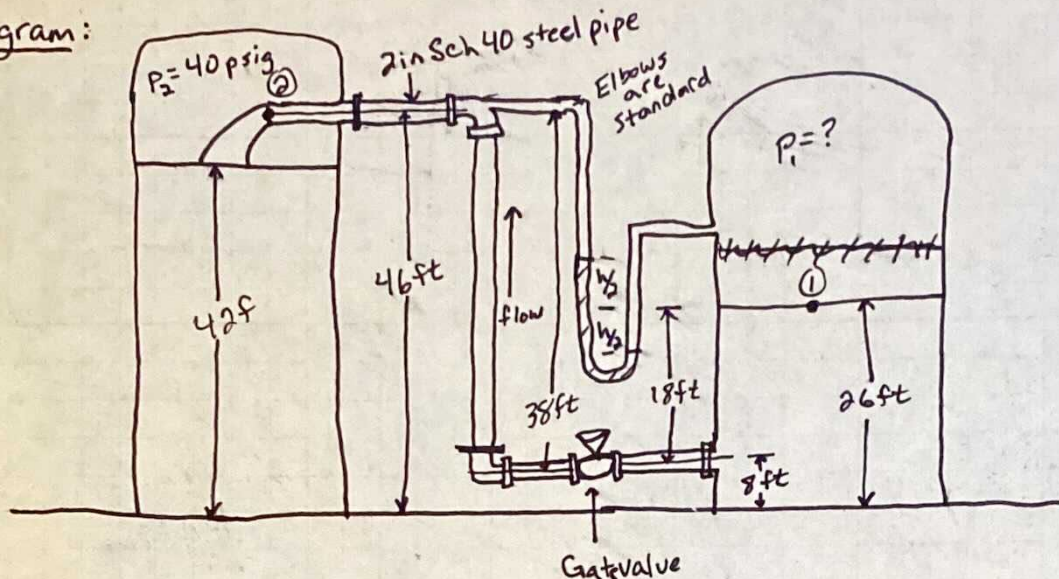 gram:
P₂= 40 psig
②
2in Sch 40 steel pipe
Elbows
are
standard
P₁=?
①
h/2
h/2
flow
42f
46ft
38ft
18ft
26ft
8ft
Gatevalue